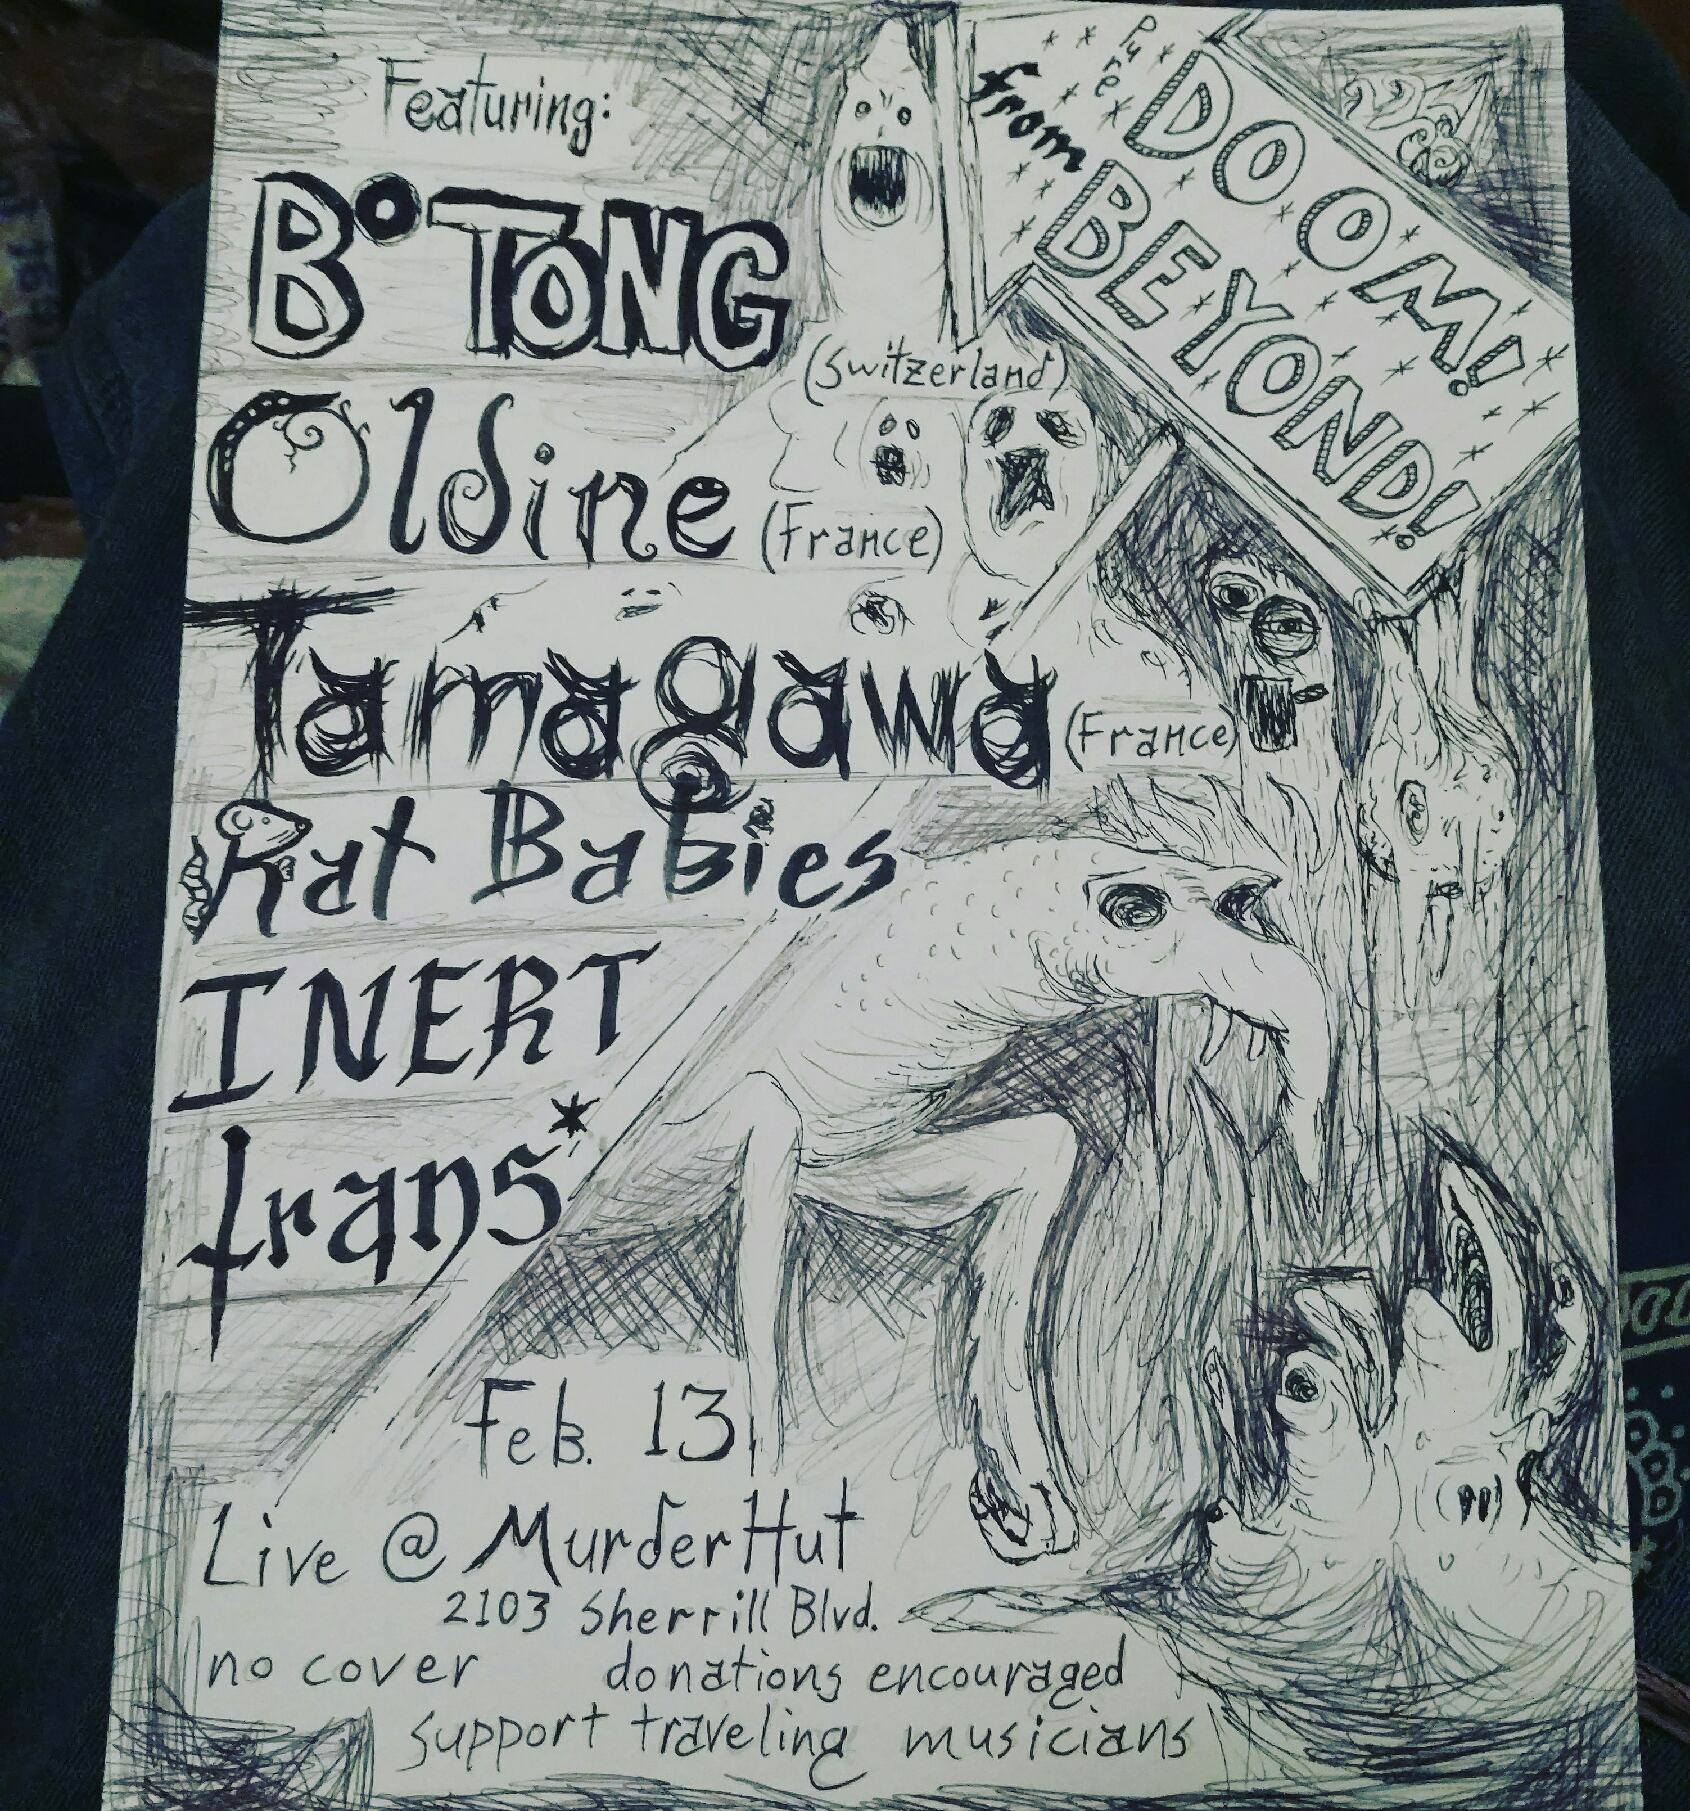 Pure
DOOM!
from
BEYOND!
Featuring:
B°TONG
(Switzerland)
Oldine (France)
Tamagawa (France)
Rat Babies
INERT
trans*
Feb. 13
Live @ MurderHut
2103 Sherrill Blvd.
no cover donations encouraged
support traveling musicians